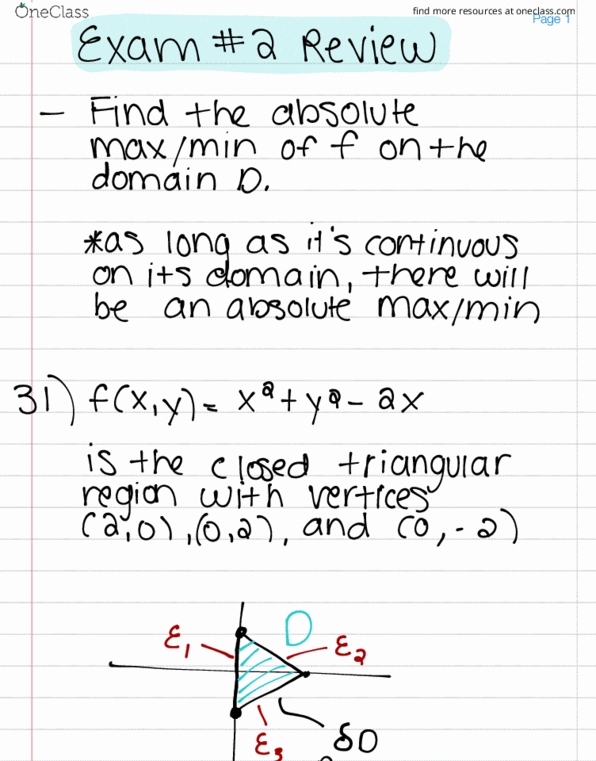 OneClass
find more resources at oneclass.com
Page 1
Exam #2 Review
- Find the absolute
max/min of f on the
domain D.
*as long as it's continuous
on its domain, there will
be an absolute max/min
31) f(x,y) = x² + y² - 2x
is the closed triangular
region with vertices
(2,0), (0,2), and (0,-2)
D
ε₁
ε₂
ε₃
δD